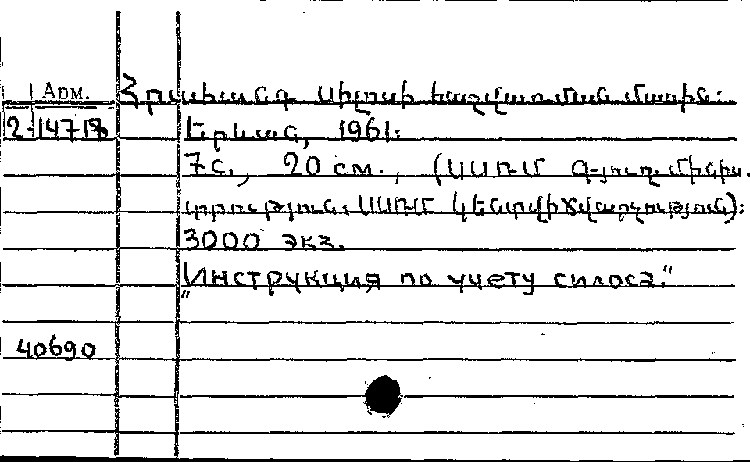 Арм.
Հրահանգ սիլոսի հաշվառման մասին:
2-14718 Երևան, 1961:
7 с., 20 см., (ՍՍՌՄ Գյուղ. մինիս-
տրություն. ՍՍՌՄ կենտվիճվարչություն):
3000 экз.
"Инструкция по учету силоса."
40690